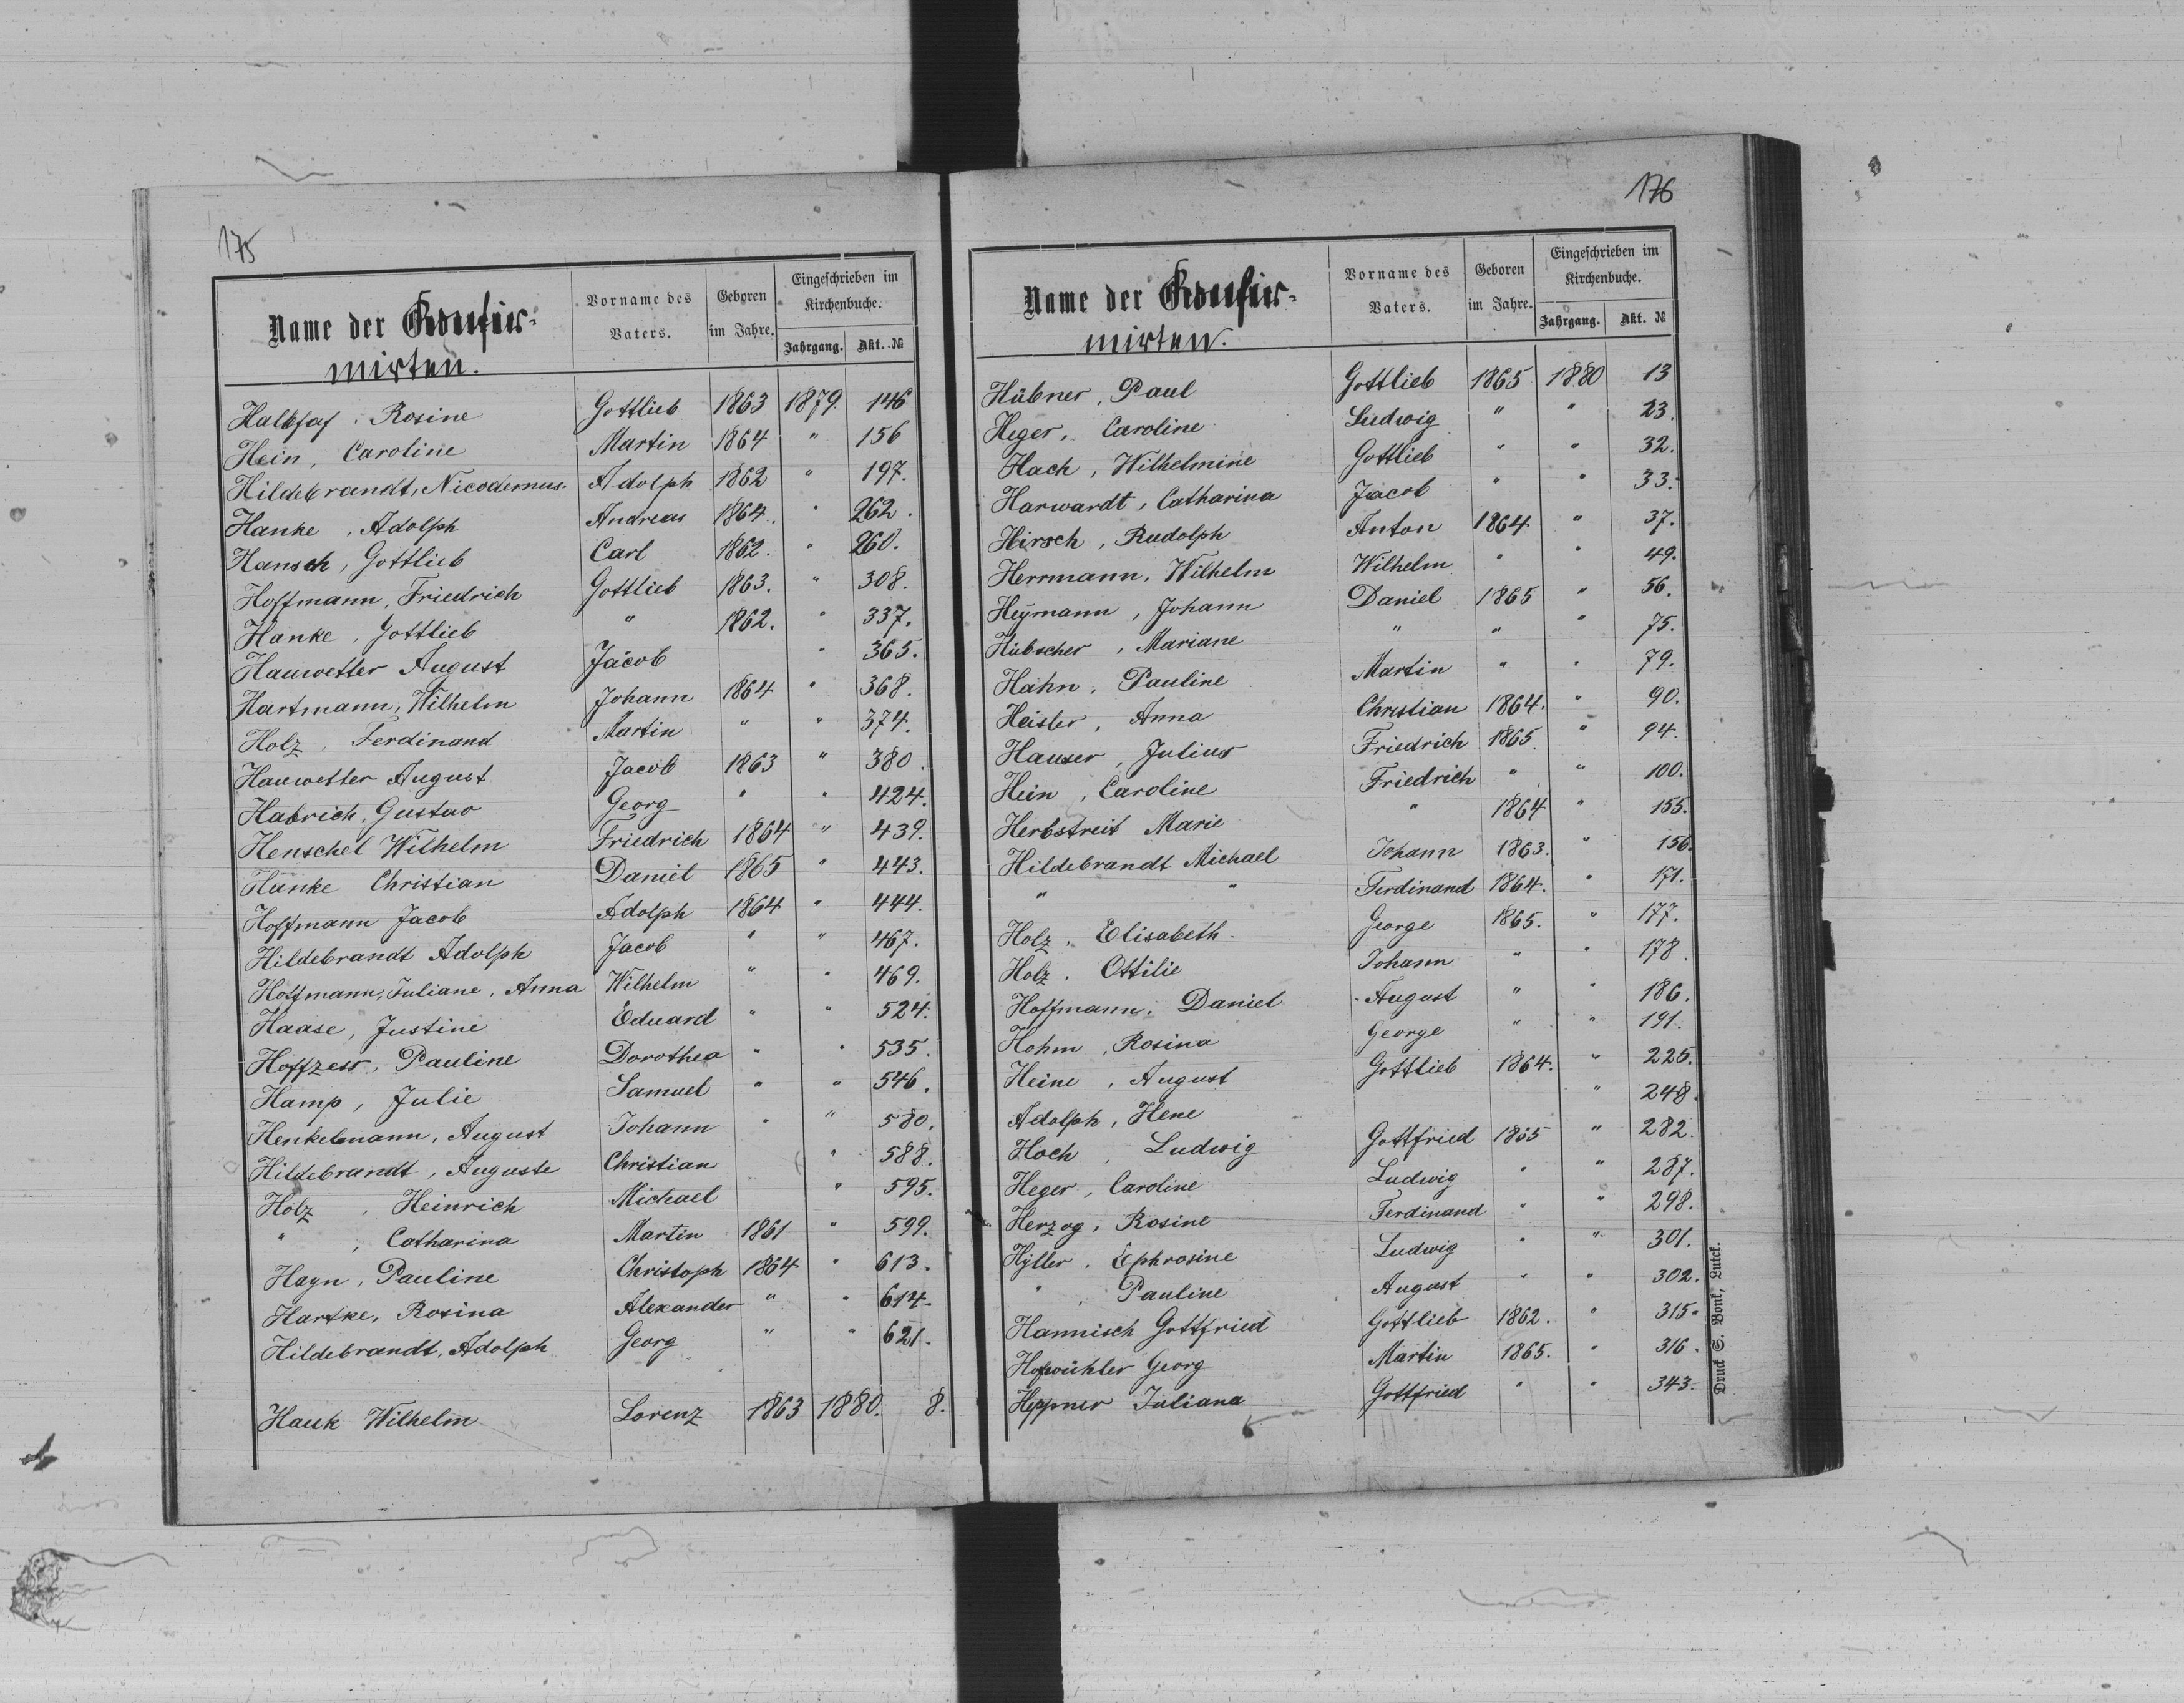 175
Name der Confir-
mirten.
Vorname des Vaters.
Geboren im Jahre.
Eingeschrieben im Kirchenbuche.
Jahrgang. Akt. №
Halbfaß, Rosine Gottlieb 1863 1879. 146
Hein, Caroline Martin 1864 " 156
Hildebrandt, Nicodemus. Adolph 1862 " 197.
Hanke, Adolph Andreas 1864. " 262.
Hansch, Gottlieb Carl 1862. " 260.
Hoffmann, Friedrich Gottlieb 1863. " 308.
Hanke, Gottlieb " 1862. " 337.
Hauwetter August Jacob " 365.
Hartmann, Wilhelm Johann 1864 " 368.
Holz, Ferdinand Martin " " 374.
Hauwetter August Jacob 1863 " 380.
Habrich, Gustav Georg " " 424.
Henschel Wilhelm Friedrich 1864 " 439.
Hanke Christian Daniel 1865 " 443.
Hoffmann Jacob Adolph 1864 " 444.
Hildebrandt Adolph Jacob " " 467.
Hoffmann, Juliane, Anna Wilhelm " " 469.
Haase, Justine Eduard " " 524.
Hoffzess, Pauline Dorothea " " 535.
Hamp, Julie Samuel " " 546.
Henkelmann, August Johann " " 580.
Hildebrandt, Auguste Christian " 588.
Holz, Heinrich Michael " 595.
", Catharina Martin 1861 " 599.
Hayn, Pauline Christoph 1864 " 613.
Hartke, Rosina Alexander " " 614.
Hildebrandt, Adolph Georg " " 621.
Hauk Wilhelm Lorenz 1863 1880. 8.
176
Name der Confir-
mirten.
Vorname des Vaters.
Geboren im Jahre.
Eingeschrieben im Kirchenbuche.
Jahrgang. Akt. №
Hübner, Paul Gottlieb 1865 1880 13
Heger, Caroline Ludwig " " 23.
Hach, Wilhelmine Gottlieb " " 32.
Harwardt, Catharina Jacob " " 33.
Hirsch, Rudolph Anton 1864 " 37.
Herrmann, Wilhelm Wilhelm " " 49.
Heymann, Johann Daniel 1865 " 56.
Hübscher, Mariane " " " 75.
Hahn, Pauline Martin " " 79.
Heisler, Anna Christian 1864. " 90.
Hauser, Julius Friedrich 1865. " 94.
Hein, Caroline Friedrich " " 100.
Herbstreit Marie " 1864 " 155.
Hildebrandt Michael Johann 1863. " 156.
" " Ferdinand 1864. " 171.
Holz, Elisabeth. George 1865. " 177.
Holz, Ottilie Johann " " 178.
Hoffmann, Daniel August " " 186.
Hohm, Rosina George " " 191.
Heine, August Gottlieb 1864. " 225.
Adolph, Hene " 248.
Hoch, Ludwig Gottfried 1865 " 282.
Heger, Caroline Ludwig " " 287.
Herzog, Rosine Ferdinand " " 298.
Hyller, Ephrosine Ludwig " " 301.
", Pauline August " " 302.
Hannisch Gottfried Gottlieb 1862. " 315.
Georg Martin 1865. " 316.
Heppner Juliana Gottfried " " 343.
Druck S. Bonk, Lutck.